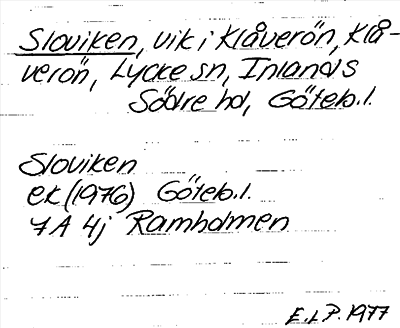 Sloviken, vik i Klåverön, Klå-
verön, Lycke sn, Inlands
Södre hd, Göteb.l.
Sloviken
ek (1976) Göteb.l.
7A 4j Ramholmen
E.L.P. 1977